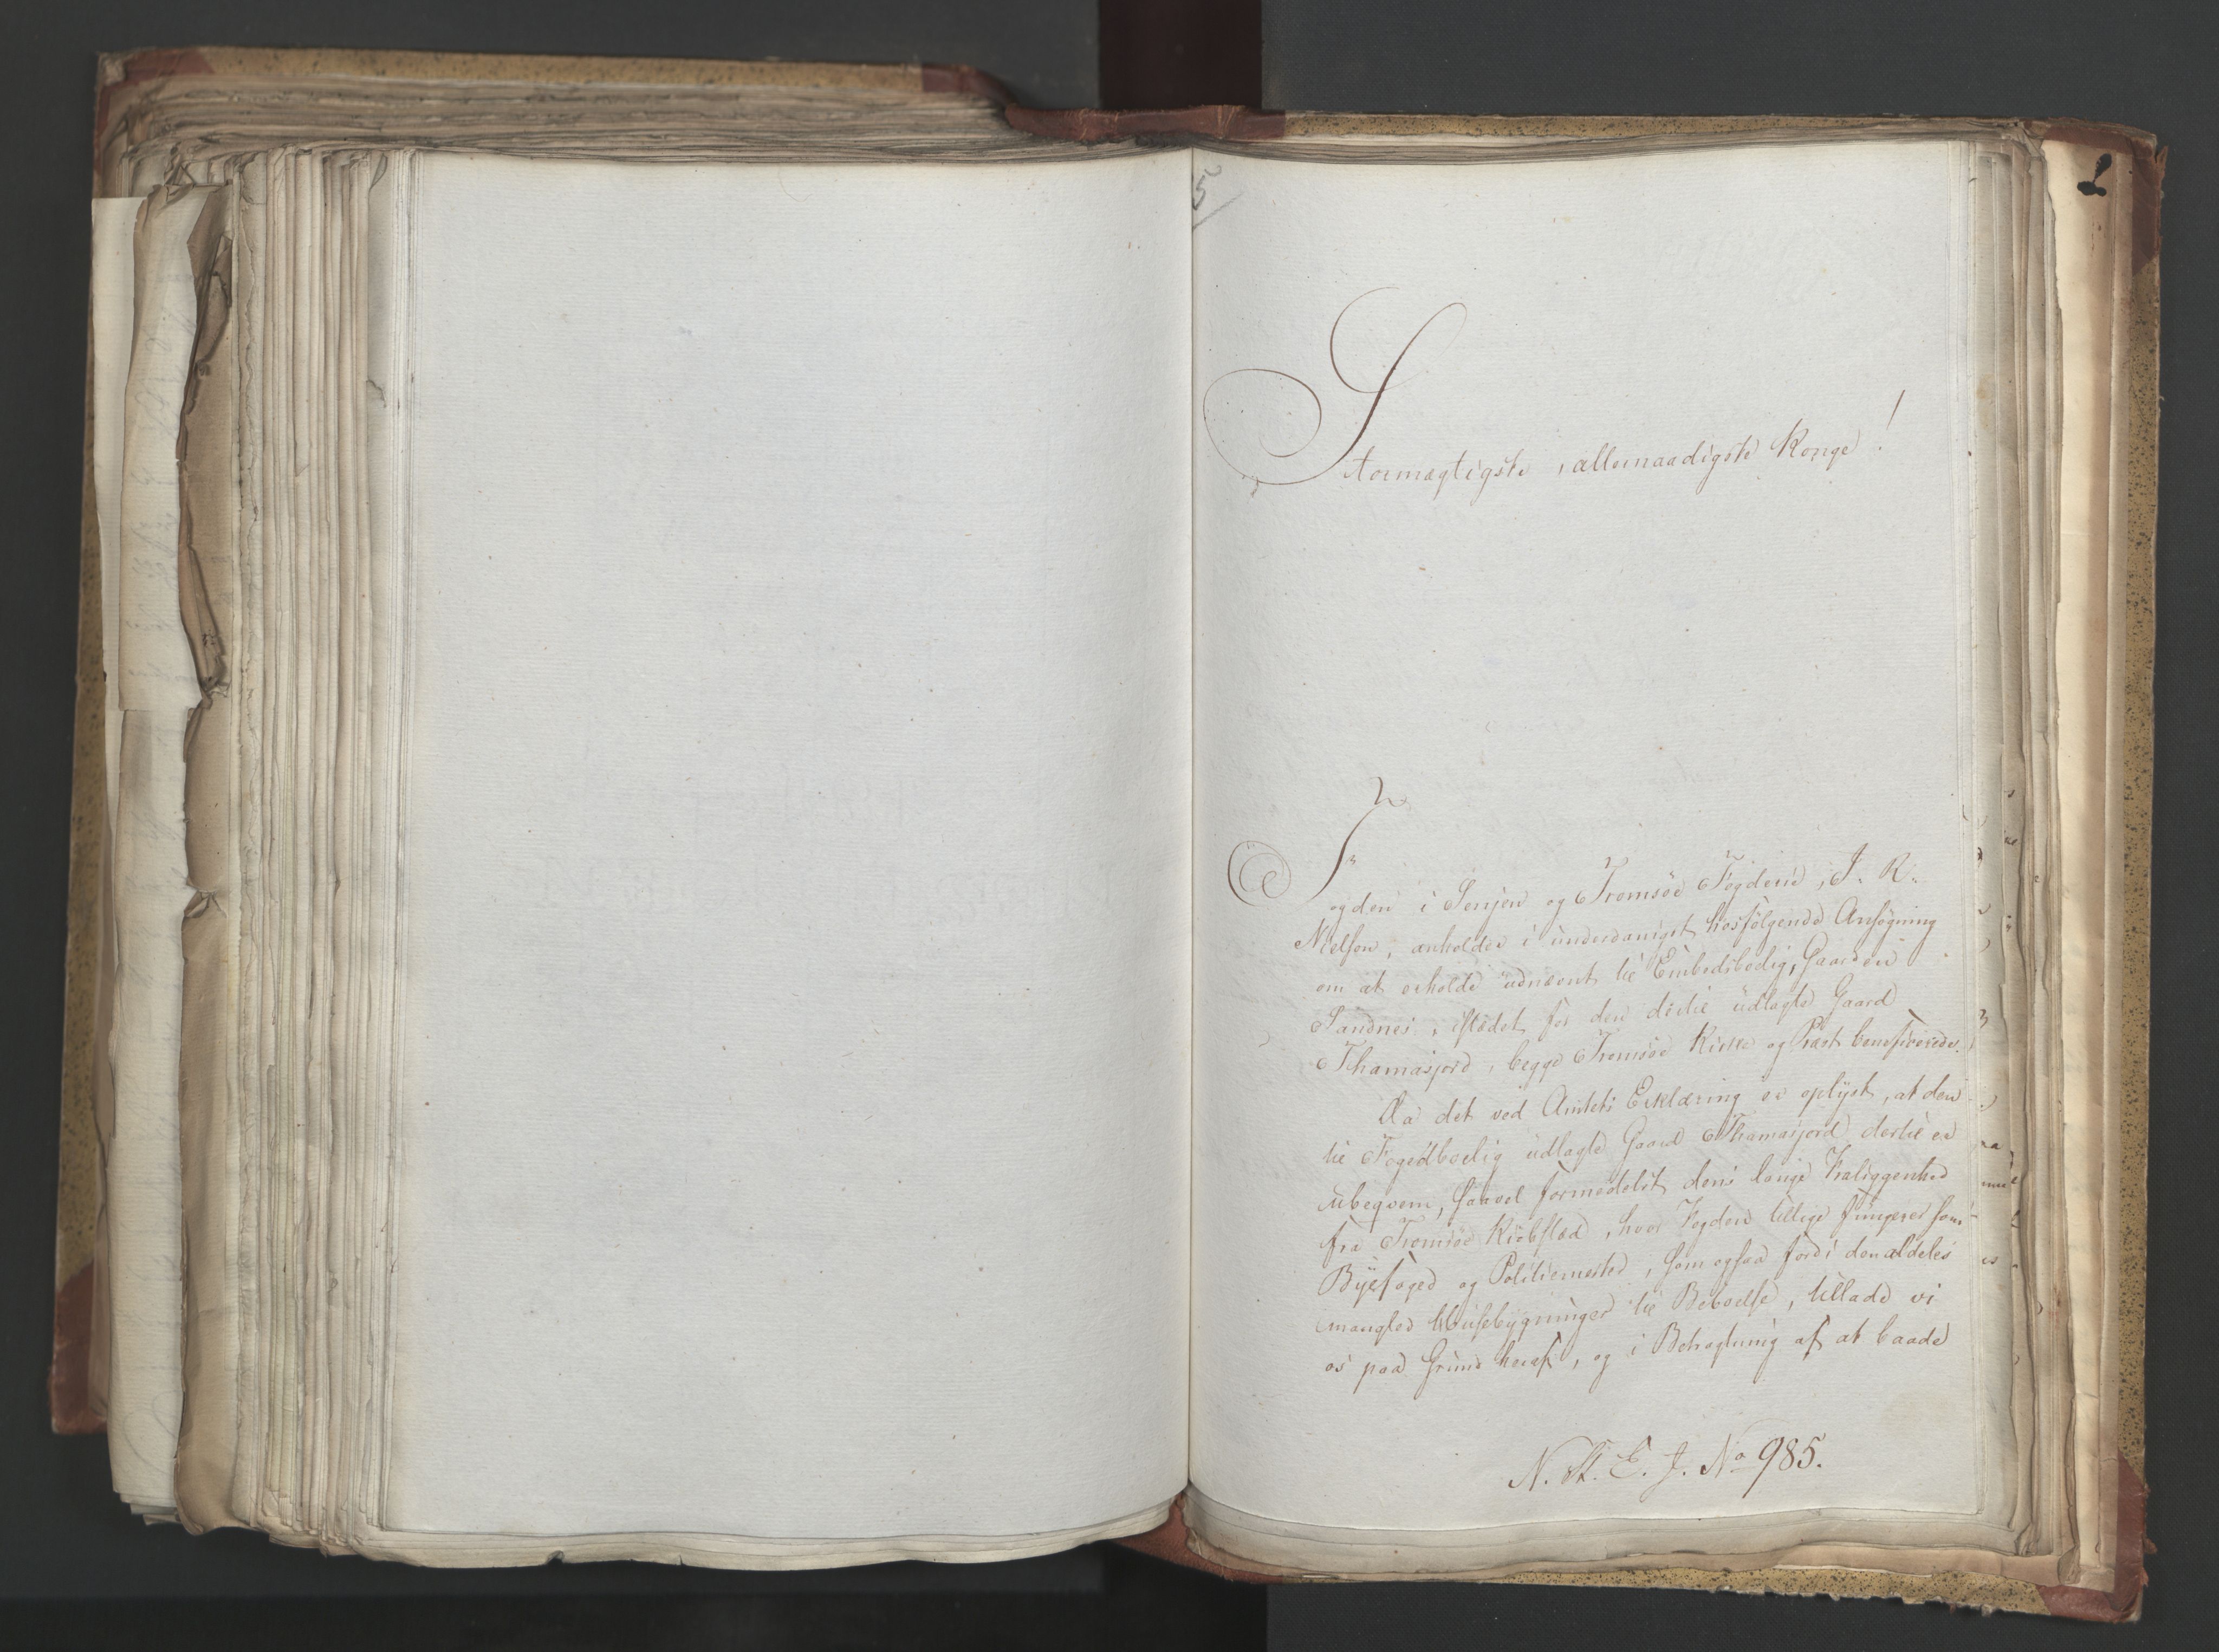 5
Stormægtigste, allernaadigste Konge!
Fogden i Senjen og Tromsöe Fogderie, J. R.
Nielsen, anholder i underdanigst hosfölgende Ansögning
om at erholde udnævnt til Embedsbolig, Gaarden
Sandnes, istædet for den dertil udlagte Gaard
Thamasjord, begge Tromsöe Kirke og Præst beneficerede.
Da det ved Amtets Erklæring er oplÿst, at den
til Fogedbolig udlagte Gaard Thamasjord dertil er
ubeqvem, saavel formedelst dens lange Fraliggenhed
fra Tromsöe Kiöbstæd, hvor Fogden tillige fungerer som
Bÿefoged og Politiemester, som ogsaa fordi den aldeles
mangler Huusebygninger til Beboelse, tillade vi
os paa Grund heraf, og i Betragtning af at baade
N. St. E. J. No 985.